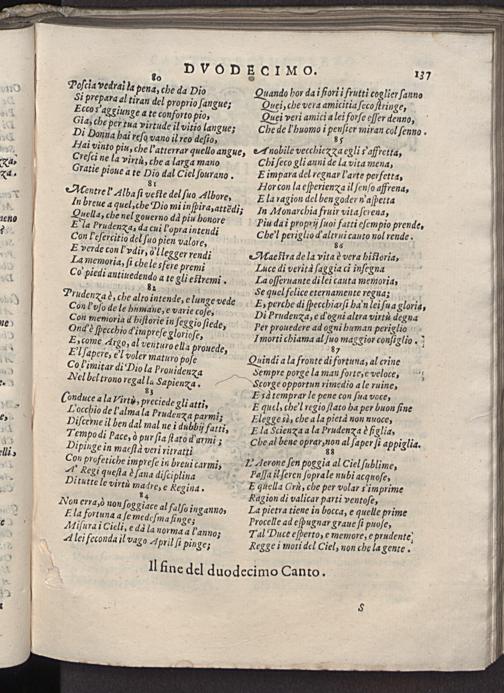 DVODECIMO. 137
80
Poscia vedrai la pena, che da Dio
Si prepara al tiran del proprio sangue;
Ecco s'aggiunge a te conforto pio,
Gia, che per tua virtude il vitio langue;
Di Donna hai reso vano il reo desio,
Hai vinto piu, che l'atterrar quello angue,
Cresci ne la virtù, che a larga mano
Gratie pioue a te Dio dal Ciel sourano.
81
Mentre l'Alba si veste del suo Albore,
In breue a quel, che Dio mi inspira, attẽdi;
Quella, che nel gouerno dà piu honore
E la Prudenza, da cui l'opra intendi
Con l'esercitio del suo pien valore,
E verde con l'vdir, ò'l legger rendi
La memoria, sì che le sfere premi
Co' piedi antiuedendo a te gli estremi.
82
Prudenza è, che alto intende, e lunge vede
Con l'vso de le humane, e varie cose,
Con memoria d'historie in seggio siede,
Ond'è specchio d'imprese gloriose,
E, come Argo, al venturo ella prouede,
E'l sapere, e'l voler maturo pose
Co l'imitar di Dio la Prouidenza
Nel bel trono regal la Sapienza.
83
Conduce a la Virtù, preciede gli atti,
L'occhio de l'alma la Prudenza parmi;
Discerne il ben dal mal ne i dubbij fatti,
Tempo di Pace, ò pur sia stato d'armi;
Dipinge in maestà veri ritratti
Con profetiche imprese in breui carmi,
A' Regi questa è sana disciplina
Di tutte le virtù madre, e Regina.
84
Non erra, ò non soggiace al falso inganno,
E la fortuna a se medesma finge;
Misura i Cieli, e dà la norma a l'anno;
A lei feconda il vago April si pinge;
Quando hor da i fiori i frutti coglier sanno
Quei, che vera amicitia seco stringe,
Quei veri amici a lei forse esser denno,
Che de l'huomo i pensier miran col senno.
85
A nobile vecchiezza egli s'affretta,
Chi seco gli anni de la vita mena,
E impara del regnar l'arte perfetta,
Hor con la esperienza il senso affrena,
E la ragion del ben goder n'aspetta
In Monarchia fruir vita serena,
Piu da i proprij suoi fatti esempio prende,
Che'l periglio d'altrui cauto nol rende.
86
Maestra de la vita è vera historia,
Luce di verità saggia ci insegna
La osseruante di lei cauta memoria,
Se quel felice eternamente regna;
E, perche di specchiarsi ha'n lei sua gloria,
Di Prudenza, e d'ogni altra virtù degna
Per prouedere ad ogni human periglio
I morti chiama al suo maggior consiglio.
87
Quindi a la fronte di fortuna, al crine
Sempre porge la man forte, e veloce,
Scorge opportun rimedio a le ruine,
E sà temprar le pene con sua voce,
E quel, che'l regio stato ha per buon fine
Elegge sì, che a la pietà non nuoce,
E la Scienza a la Prudenza è figlia,
Che al bene oprar, non al saper si appiglia.
88
L'Aerone sen poggia al Ciel sublime,
Passa il seren sopra le nubi acquose,
E quella Grù, che per volar s'imprime
Ragion di valicar parti ventose,
La pietra tiene in bocca, e quelle prime
Procelle ad espugnar graue si puose,
Tal Duce esperto, e memore, e prudente
Regge i moti del Ciel, non che la gente.
Il fine del duodecimo Canto.
S